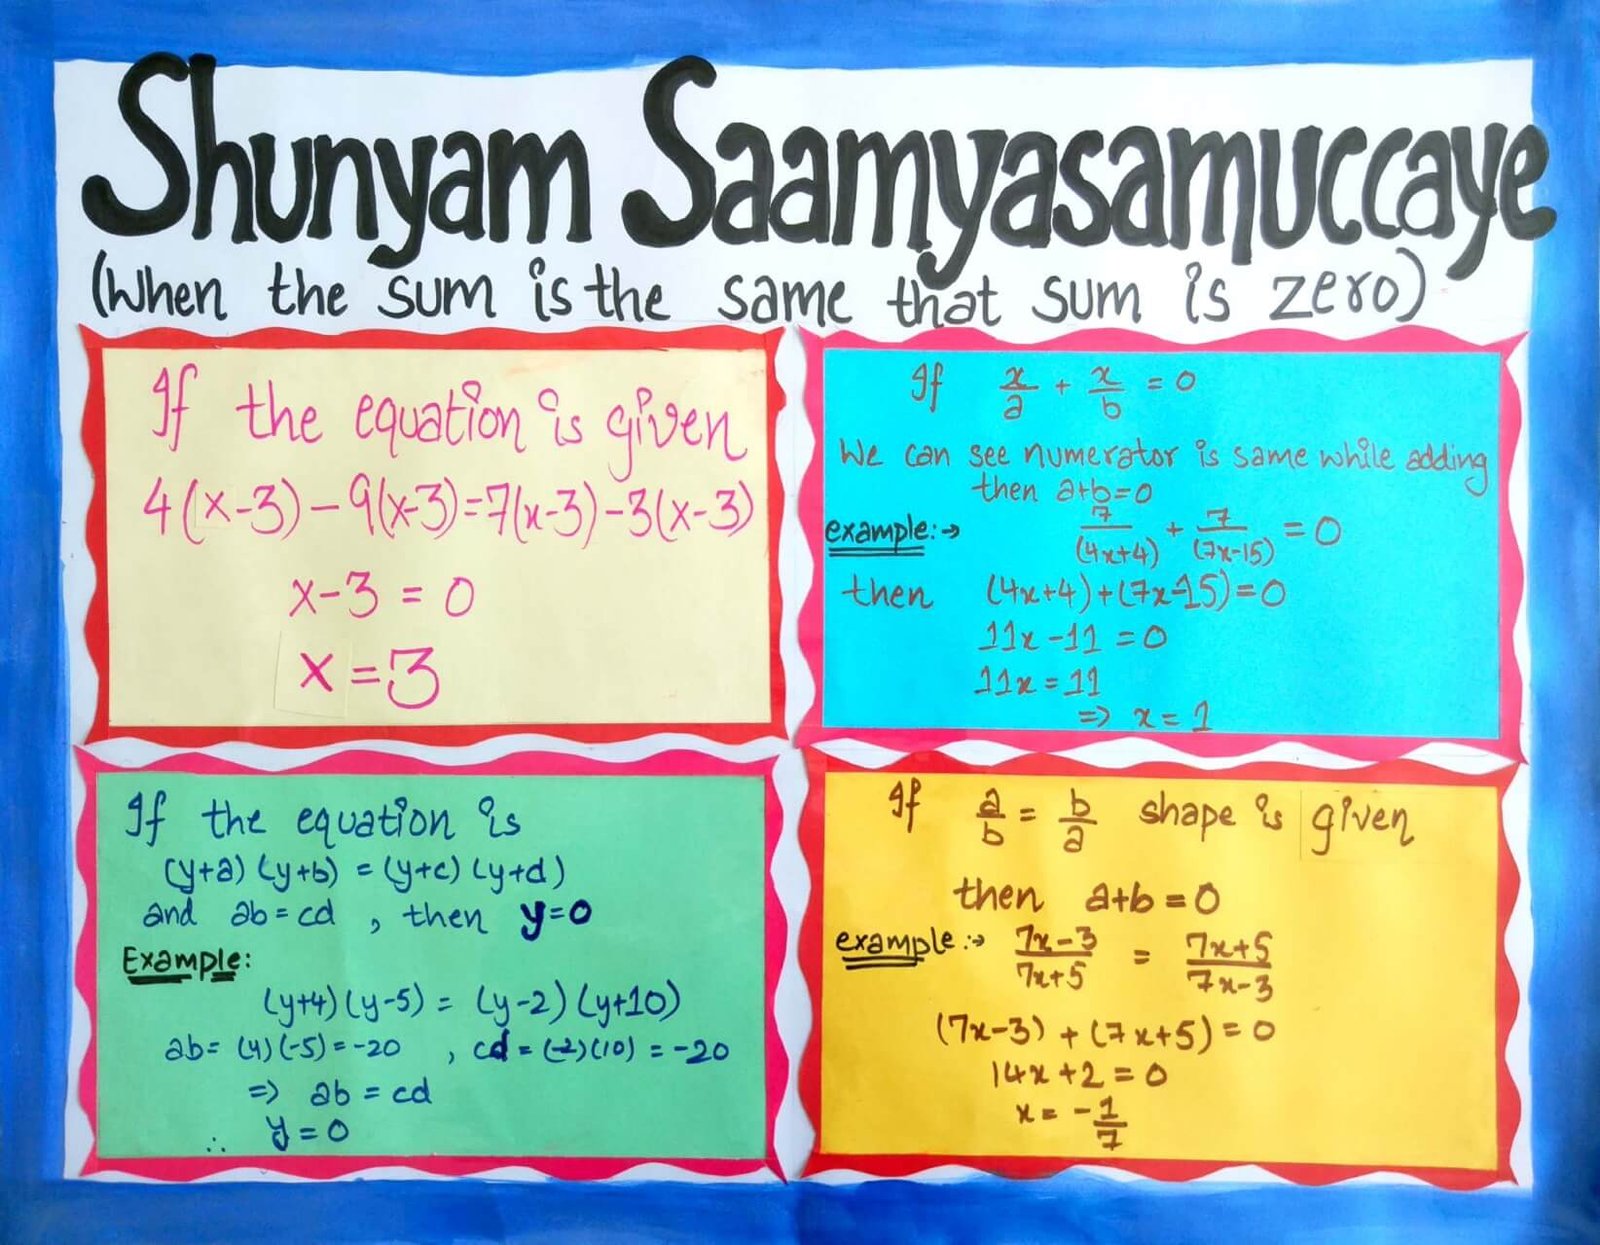 Shunyam Saamyasamuccaye
(When the sum is the same that sum is zero)
If the equation is given
4(x-3)-9(x-3)=7(x-3)-3(x-3)
x-3=0
x=3
If x/a + x/b = 0
We can see numerator is same while adding
then a+b=0
example:→ 7/(4x+4) + 7/(7x-15) = 0
then (4x+4)+(7x-15)=0
11x-11=0
11x=11
⇒ x=1
If the equation is
(y+a)(y+b)=(y+c)(y+d)
and ab=cd, then y=0
Example:
(y+4)(y-5)=(y-2)(y+10)
ab=(4)(-5)=-20, cd=(-2)(10)=-20
⇒ ab=cd
∴ y=0
If a/b = b/a shape is given
then a+b=0
example:→ 7x-3/7x+5 = 7x+5/7x-3
(7x-3)+(7x+5)=0
14x+2=0
x=-1/7